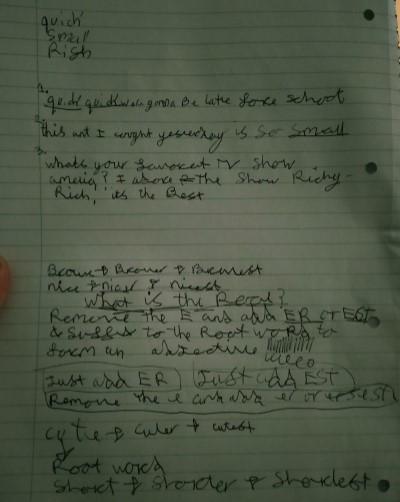 quick
Small
Rish
1. quick quick were gonna Be late fore school
2. this ant I cought yesterday is So Small
3. whats your favoket TV Show
ameliq? I adore the Show Richy-
Rich, its the Best
Brown → Browner → Brownest
nice → nicer → nicest
What is the Becas?
Remove the E and add ER or EST
a Suffix to the Root word to
form an adjective
Just add ER Just add EST
Remove the e and add er or est
cute → cuter → cutest
Root word
Short → Shorder → Shordest